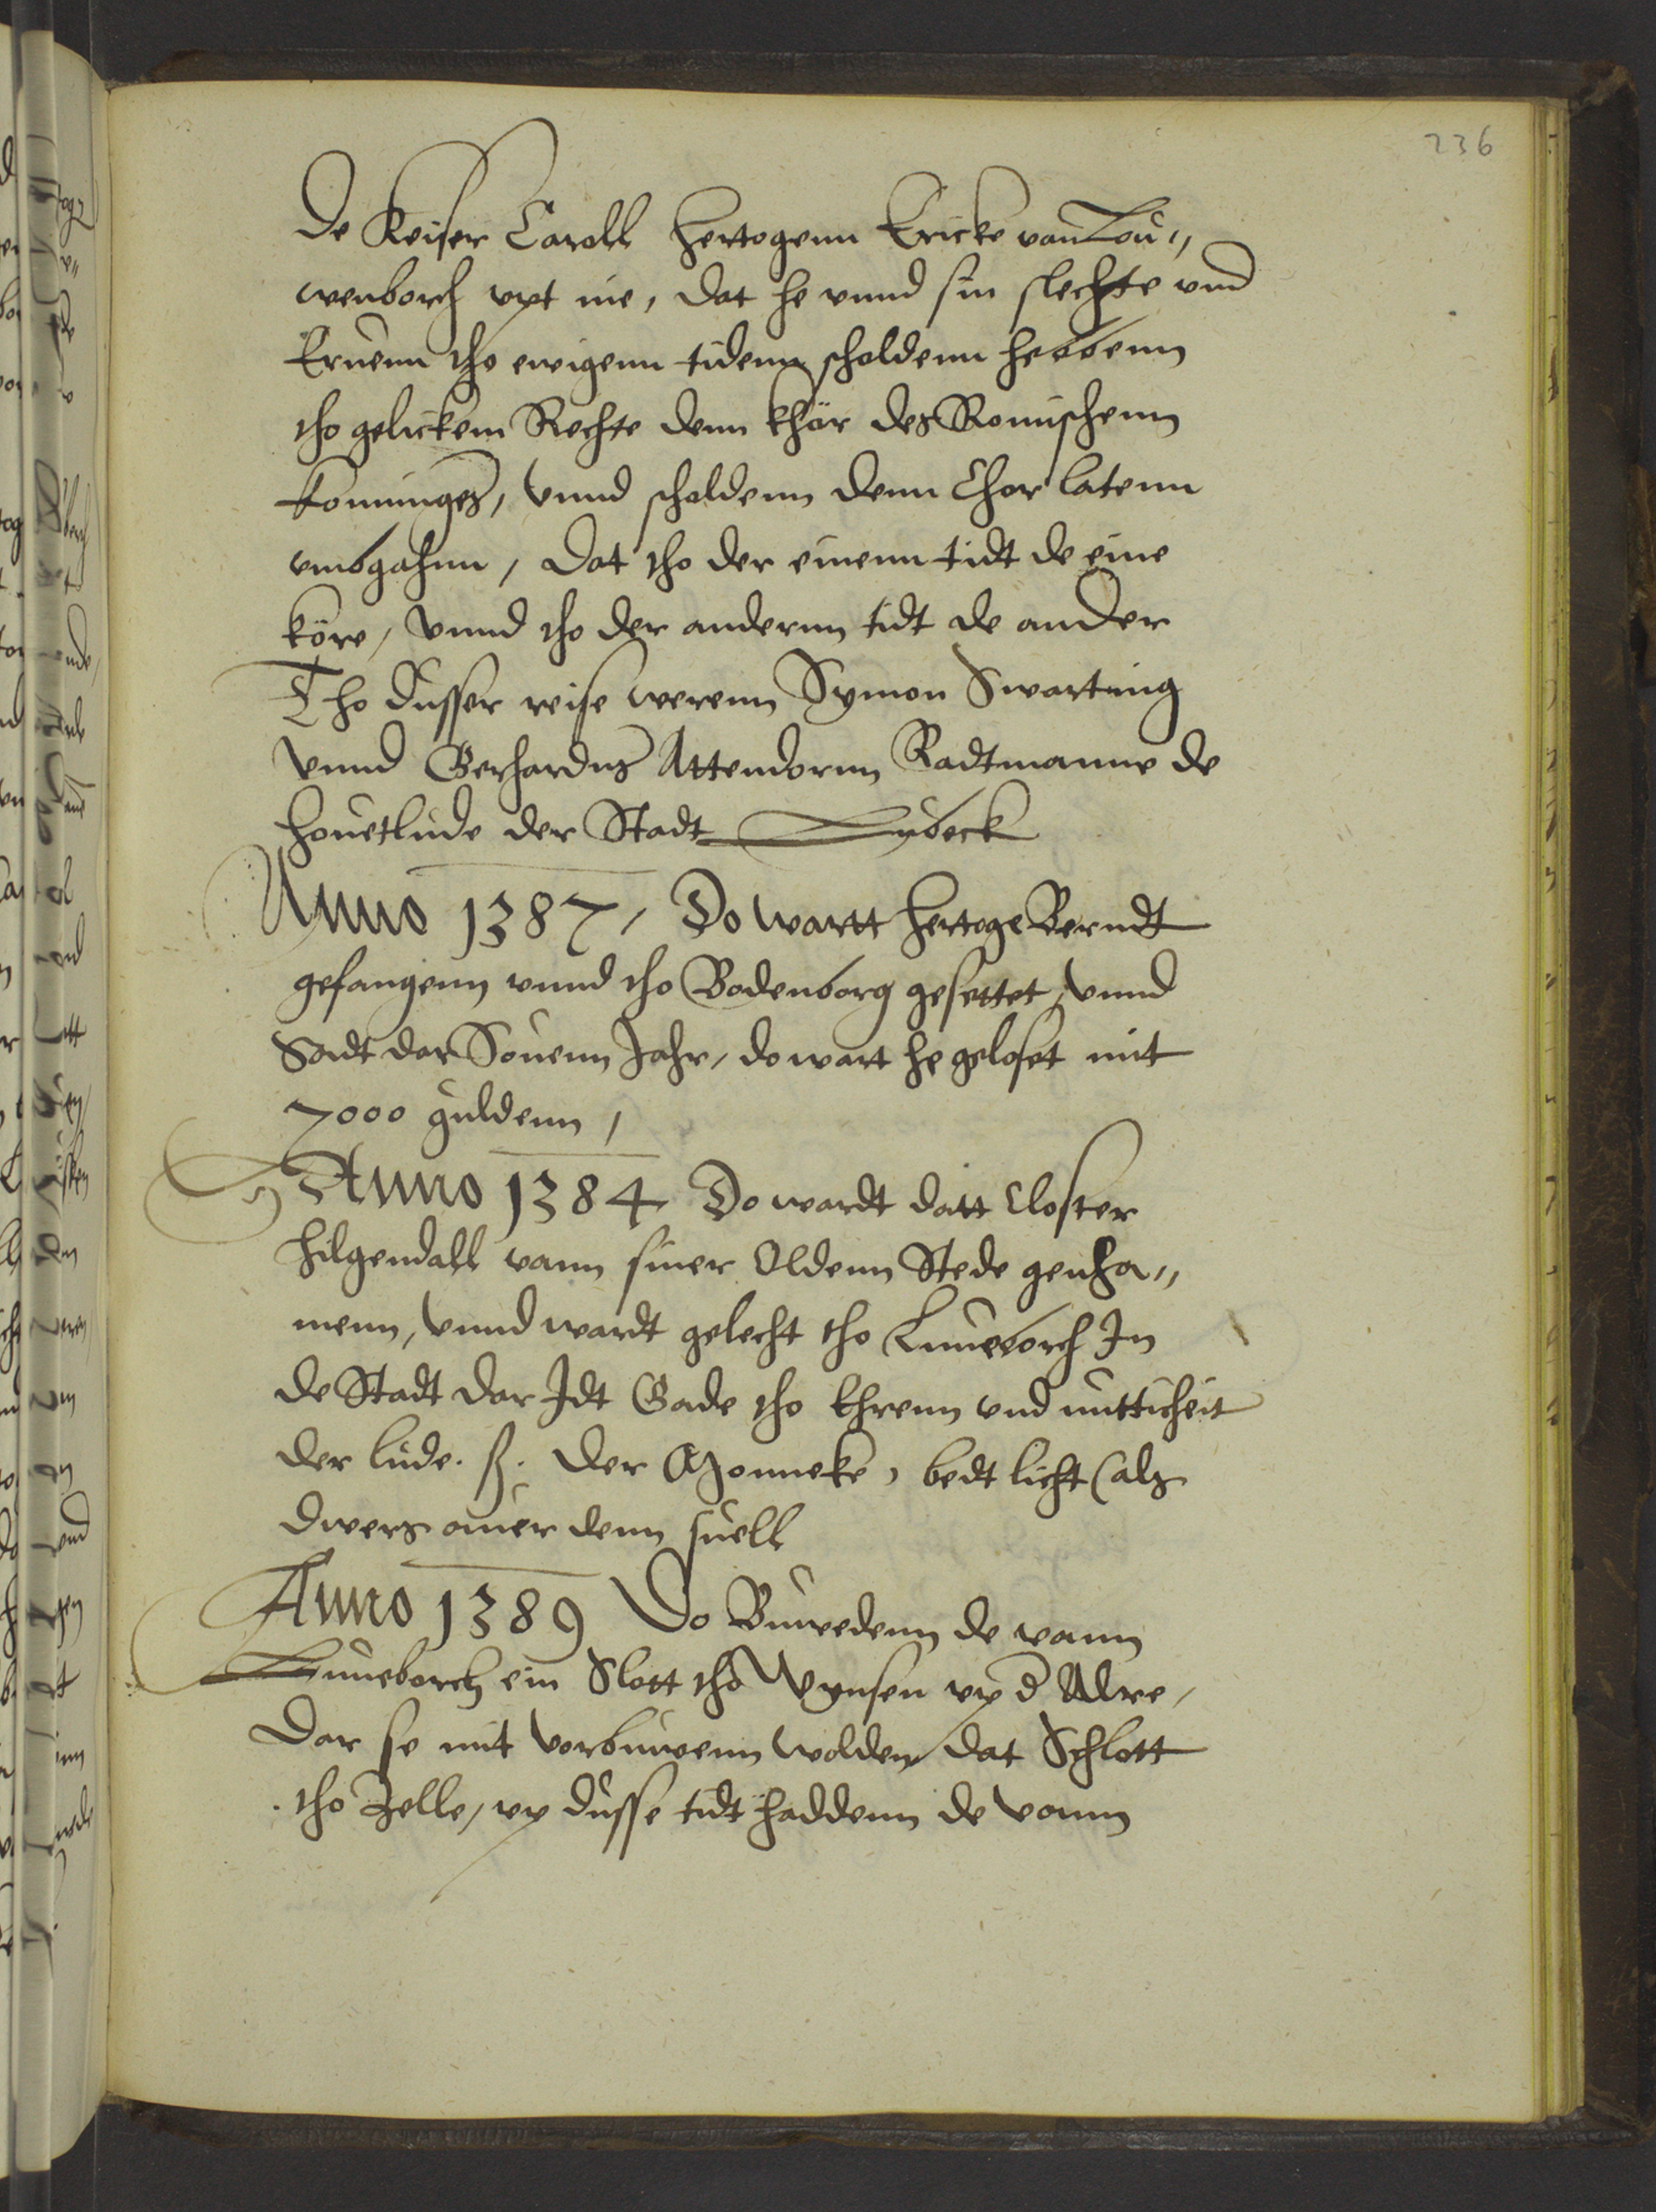 236
De Keiser Caroll Hertogenn Ericke vann Lou„
wenborch vpt nie, dat he vnnd sin slechte vnd
Eruenn tho ewigenn tidenn scholdenn hebbenn
tho gelickem Rechte denn khör des Romischenn
Konninges, Vnnd scholdenn denn Chor latenn
vmbgahnn, Dat tho der einenn tidt de eine
köre, Vnnd tho der anderenn tidt de ander
Tho dusser reise werenn Symon Swarting
Vnnd Gerhardus Attendornn Radtmanne de
Houetlude der Stadt Lubeck
Anno 1387, Do wartt Hertoge Berndt
gefangenn vnnd tho Bodenborg gesettet, Vnnd
Sadt dar Souenn Jahr, do wart he geloset mit
7000 guldenn,
Anno 1384 Do wardt datt Closter
Hilgendall vann siner Oldenn Stede genha„
menn, Vnnd wardt gelecht tho Luneborch In
de Stadt dar Idt Gade tho Ehrenn vnd nutticheit
der lude. der Monneke, bedt licht (als
dwers ouer denn suell
Anno 1389 Do Buwedenn de vann
Luneborch ein Slott tho Wynsen vp d Alre,
Dar se mit vorbuwenn wolden dat Schlott
tho Zelle, vp dusse tidt haddenn de vonn